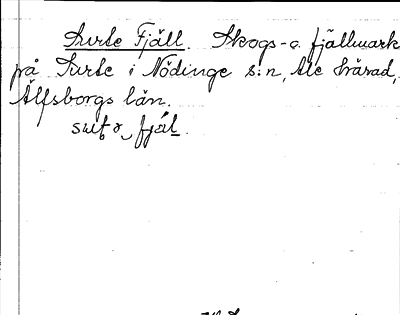 Surte Fjäll. Skogs- o. fjällmark
på Surte i Nödinge s:n, Ale härad,
Älfsborgs län.
fjäl.